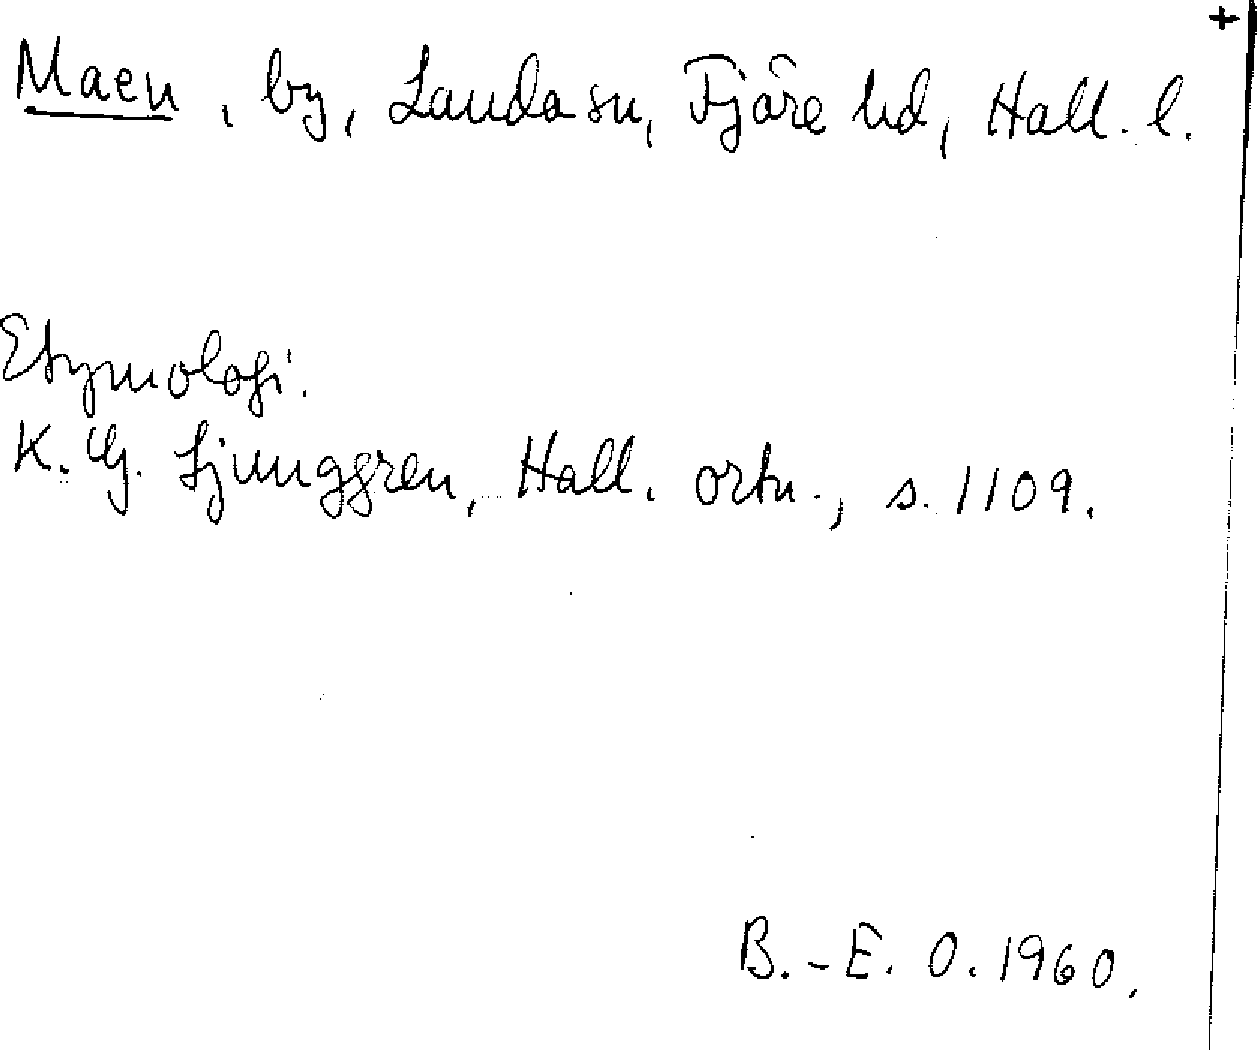 +
Maen, by, Landa sn, Fjäre hd, Hall. l.
Etymologi.
K. G. Ljunggren, Hall. ortn., s. 1109.
B.-E. O. 1960.